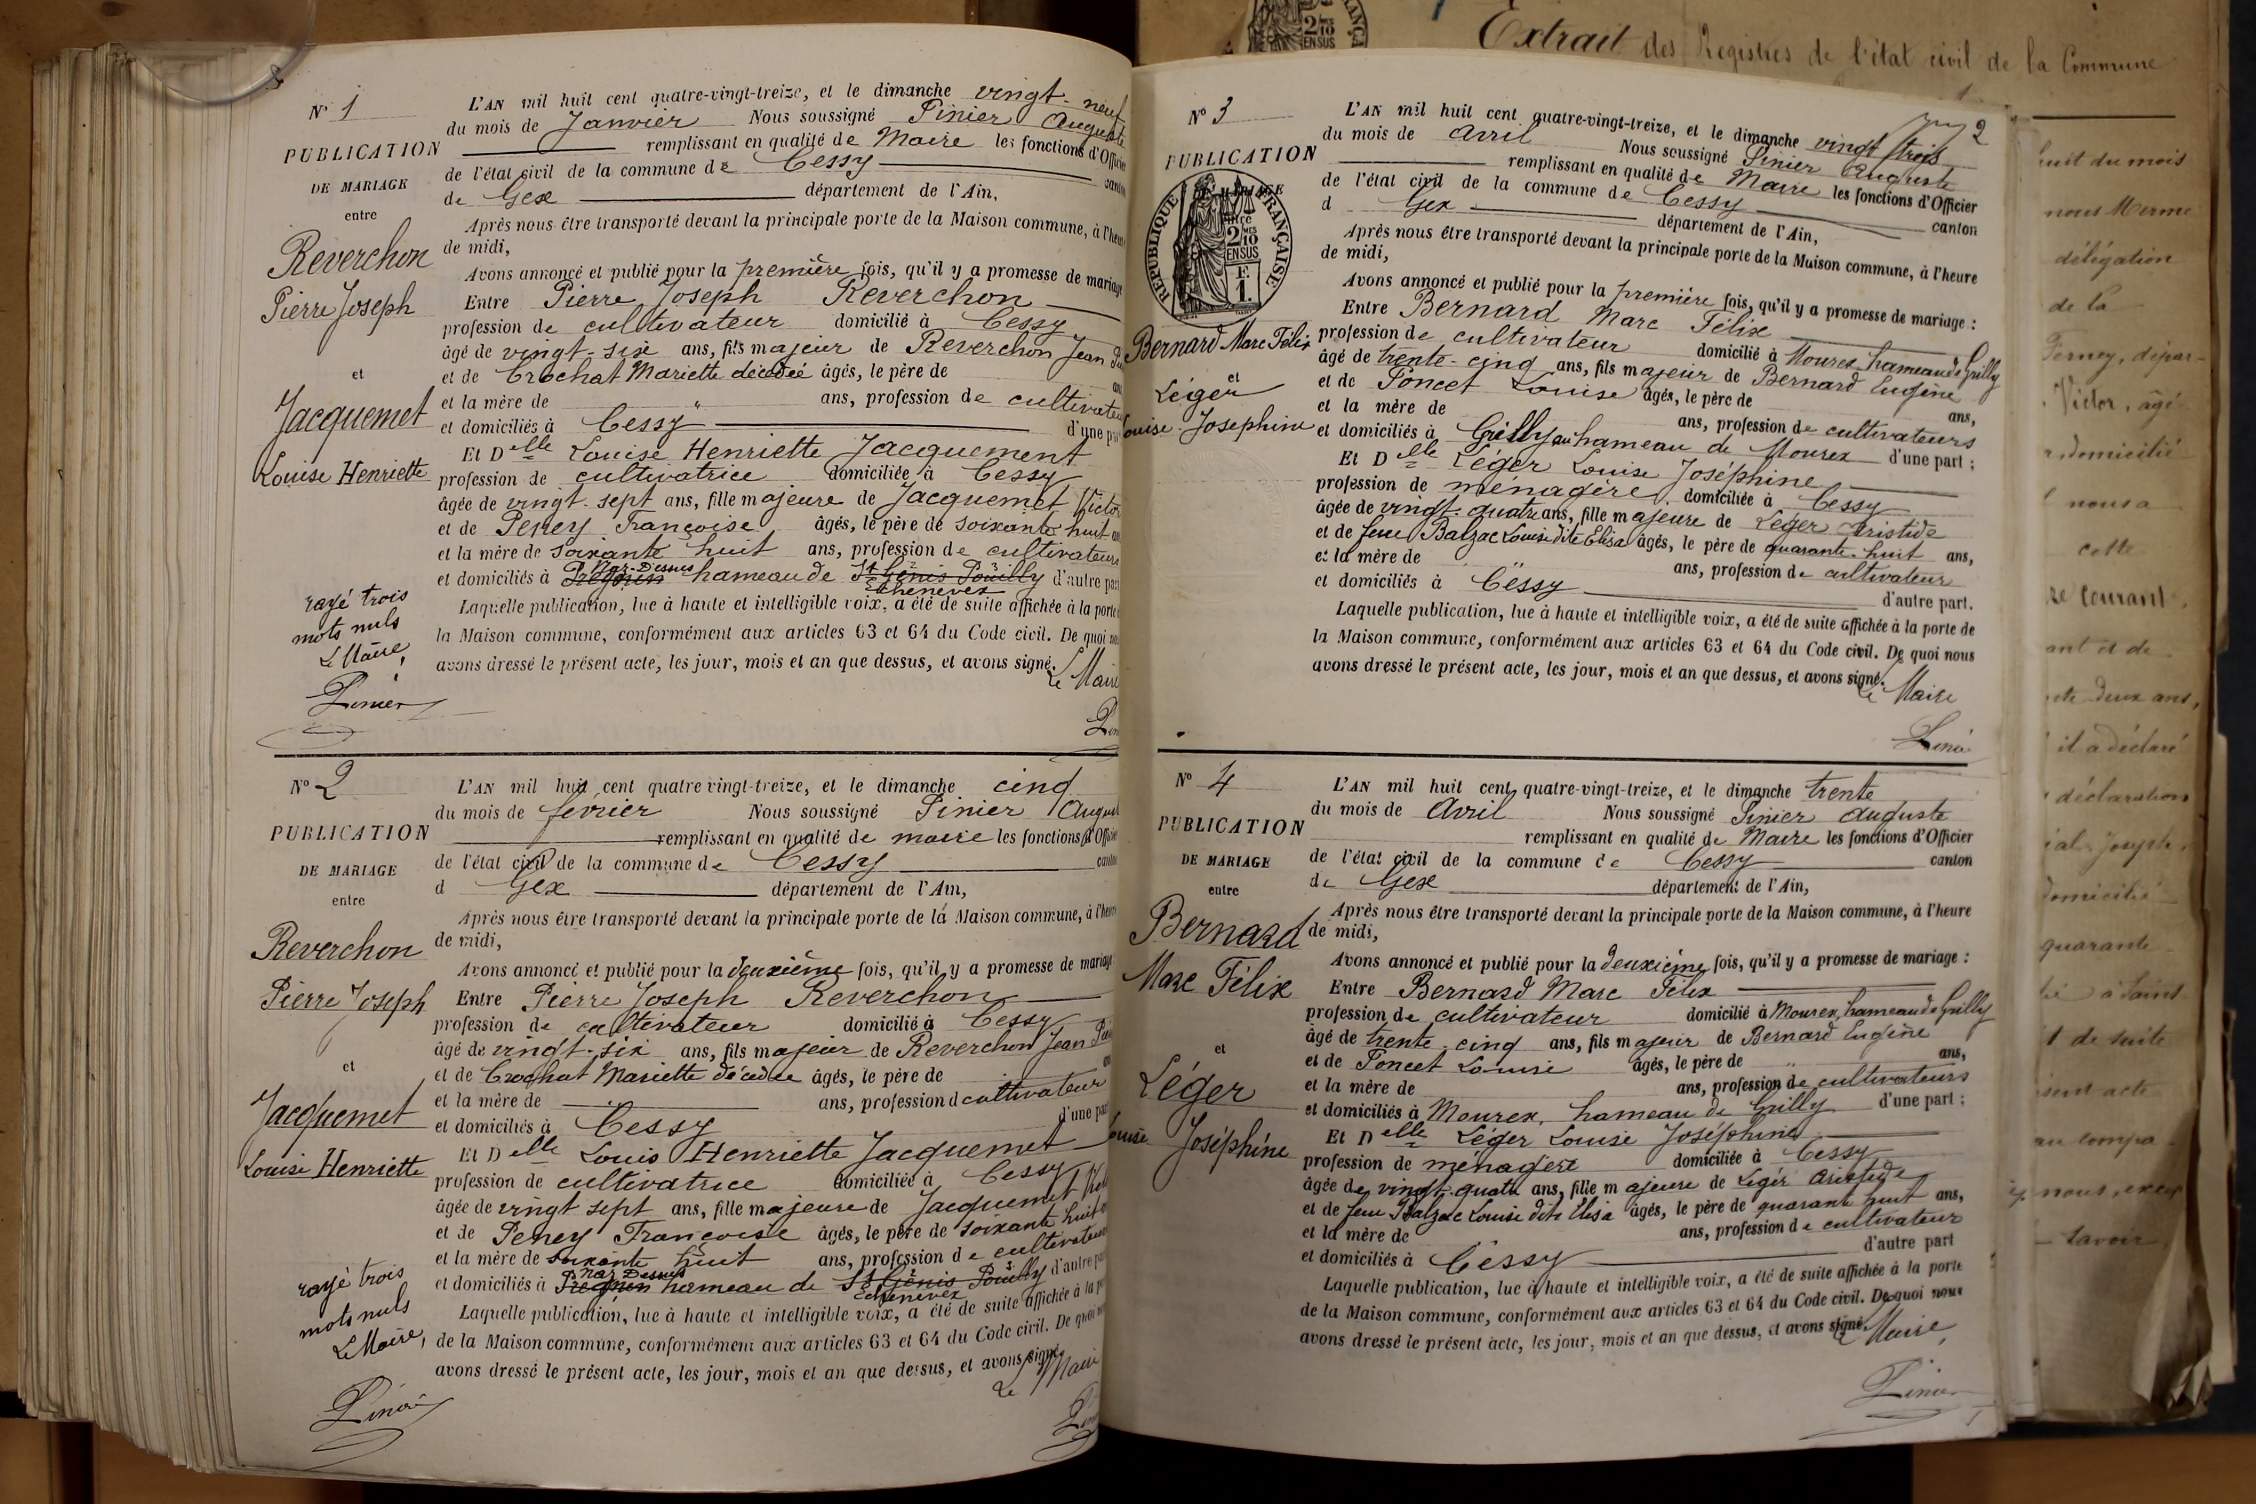 N° 1
PUBLICATION
DE MARIAGE
entre
Reverchon
Pierre Joseph
et
Jacquemet
Louise Henriette
rayé trois
mots nuls
Le Maire,
Pinier
L'AN mil huit cent quatre-vingt-treize, et le dimanche vingt-neuf
du mois de Janvier Nous soussigné Pinier Auguste
remplissant en qualité de Maire les fonctions d'Officier
de l'état civil de la commune de Cessy canton
de Gex département de l'Ain,
Après nous être transporté devant la principale porte de la Maison commune, à l'heure
de midi,
Avons annoncé et publié pour la première fois, qu'il y a promesse de mariage
Entre Pierre Joseph Reverchon
profession de cultivateur domicilié à Cessy
âgé de vingt-six ans, fils majeur de Reverchon Jean
et de Crochat Mariette décédée âgés, le père de
et la mère de ans, profession de cultivateur
et domiciliés à Cessy d'une part
Et Delle Louise Henriette Jacquement
profession de cultivatrice domiciliée à Cessy
âgée de vingt-sept ans, fille majeure de Jacquemet Victor
et de Peney Françoise âgés, le père de soixante huit ans
et la mère de soixante huit ans, profession de cultivateurs
Naz-Dessus
et domiciliés à Pregnin hameau de St Génis Pouilly d'autre part
Echenevex
Laquelle publication, lue à haute et intelligible voix, a été de suite affichée à la porte
la Maison commune, conformément aux articles 63 et 64 du Code civil. De quoi nous
avons dressé le présent acte, les jour, mois et an que dessus, et avons signé.
Le Maire
N° 2
PUBLICATION
DE MARIAGE
entre
Reverchon
Pierre Joseph
et
Jacquemet
Louise Henriette
rayé trois
mots nuls
Le Maire,
Pinier
L'AN mil huit cent quatre vingt-treize, et le dimanche cinq
du mois de février Nous soussigné Pinier Auguste
remplissant en qualité de maire les fonctions d'Officier
de l'état civil de la commune de Cessy canton
d Gex département de l'Ain,
Après nous être transporté devant la principale porte de la Maison commune, à l'heure
de midi,
Avons annoncé et publié pour la deuxième fois, qu'il y a promesse de mariage
Entre Pierre Joseph Reverchon
profession de cultivateur domicilié à Cessy
âgé de vingt-six ans, fils majeur de Reverchon Jean
et de Crochat Mariette décédée âgés, le père de
et la mère de ans, profession d cultivateur
et domiciliés à Cessy d'une part
Et Delle Louis Henriette Jacquemet
profession de cultivatrice domiciliée à Cessy
âgée de vingt sept ans, fille majeure de Jacquemet
et de Peney Françoise âgés, le père de soixante huit
et la mère de soixante huit ans, profession de cultivateurs
Naz Dessus
et domiciliés à Pregnin hameau de St Génis Pouilly d'autre part
Echenevex
Laquelle publication, lue à haute et intelligible voix, a été de suite affichée à la porte
de la Maison commune, conformément aux articles 63 et 64 du Code civil. De quoi nous
avons dressé le présent acte, les jour, mois et an que dessus, et avons signé.
Le Maire
N° 3
PUBLICATION
DE MARIAGE
entre
RÉPUBLIQUE FRANÇAISE
2/10 EN SUS
F.
1.
Bernard Marc Félix
et
Léger
Louise Josephine
2
L'AN mil huit cent quatre-vingt-treize, et le dimanche vingt trois
du mois de Avril Nous soussigné Pinier Auguste
remplissant en qualité de Maire les fonctions d'Officier
de l'état civil de la commune de Cessy canton
d Gex département de l'Ain,
Après nous être transporté devant la principale porte de la Maison commune, à l'heure
de midi,
Avons annoncé et publié pour la première fois, qu'il y a promesse de mariage :
Entre Bernard Marc Félix
profession de cultivateur domicilié à Mourex hameau de Grilly
âgé de trente-cinq ans, fils majeur de Bernard Eugène
et de Poncet Louise âgés, le père de ans,
et la mère de ans, profession de cultivateurs
et domiciliés à Grilly au hameau de Mourex d'une part ;
Et Delle Léger Louise Joséphine
profession de ménagère domiciliée à Cessy
âgée de vingt-quatre ans, fille majeure de Léger Aristide
et de feue Balzac Louise dite Elisa âgés, le père de quarante-huit ans,
et la mère de ans, profession de cultivateur
et domiciliés à Cessy d'autre part.
Laquelle publication, lue à haute et intelligible voix, a été de suite affichée à la porte de
la Maison commune, conformément aux articles 63 et 64 du Code civil. De quoi nous
avons dressé le présent acte, les jour, mois et an que dessus, et avons signé.
Le Maire
Pinier
N° 4
PUBLICATION
DE MARIAGE
entre
Bernard
Marc Félix
et
Léger
Louise Joséphine
L'AN mil huit cent quatre-vingt-treize, et le dimanche trente
du mois de Avril Nous soussigné Pinier Auguste
remplissant en qualité de Maire les fonctions d'Officier
de l'état civil de la commune de Cessy canton
de Gex département de l'Ain,
Après nous être transporté devant la principale porte de la Maison commune, à l'heure
de midi,
Avons annoncé et publié pour la deuxième fois, qu'il y a promesse de mariage :
Entre Bernard Marc Félix
profession de cultivateur domicilié à Mourex, hameau de Grilly
âgé de trente-cinq ans, fils majeur de Bernard Eugène
et de Poncet Louise âgés, le père de ans,
et la mère de ans, profession de cultivateurs
et domiciliés à Mourex, hameau de Grilly d'une part ;
Et Delle Léger Louise Joséphine
profession de ménagère domiciliée à Cessy
âgée de vingt-quatre ans, fille majeure de Léger Aristide
et de feue Balzac Louise dite Elisa âgés, le père de quarante huit ans,
et la mère de ans, profession de cultivateur
et domiciliés à Cessy d'autre part
Laquelle publication, lue à haute et intelligible voix, a été de suite affichée à la porte
de la Maison commune, conformément aux articles 63 et 64 du Code civil. De quoi nous
avons dressé le présent acte, les jour, mois et an que dessus, et avons signé.
Le Maire,
Pinier
Extrait des Registres de l'état civil de la Commune
huit du mois
nous
délégation
de la
Ferney, dépar-
Victor, âgé
domicilié
nous a
cette
courant,
ant et de
deux ans,
il a déclaré
déclaration
Joseph,
domicilié
quarante
de suite
acte
nous,
savoir